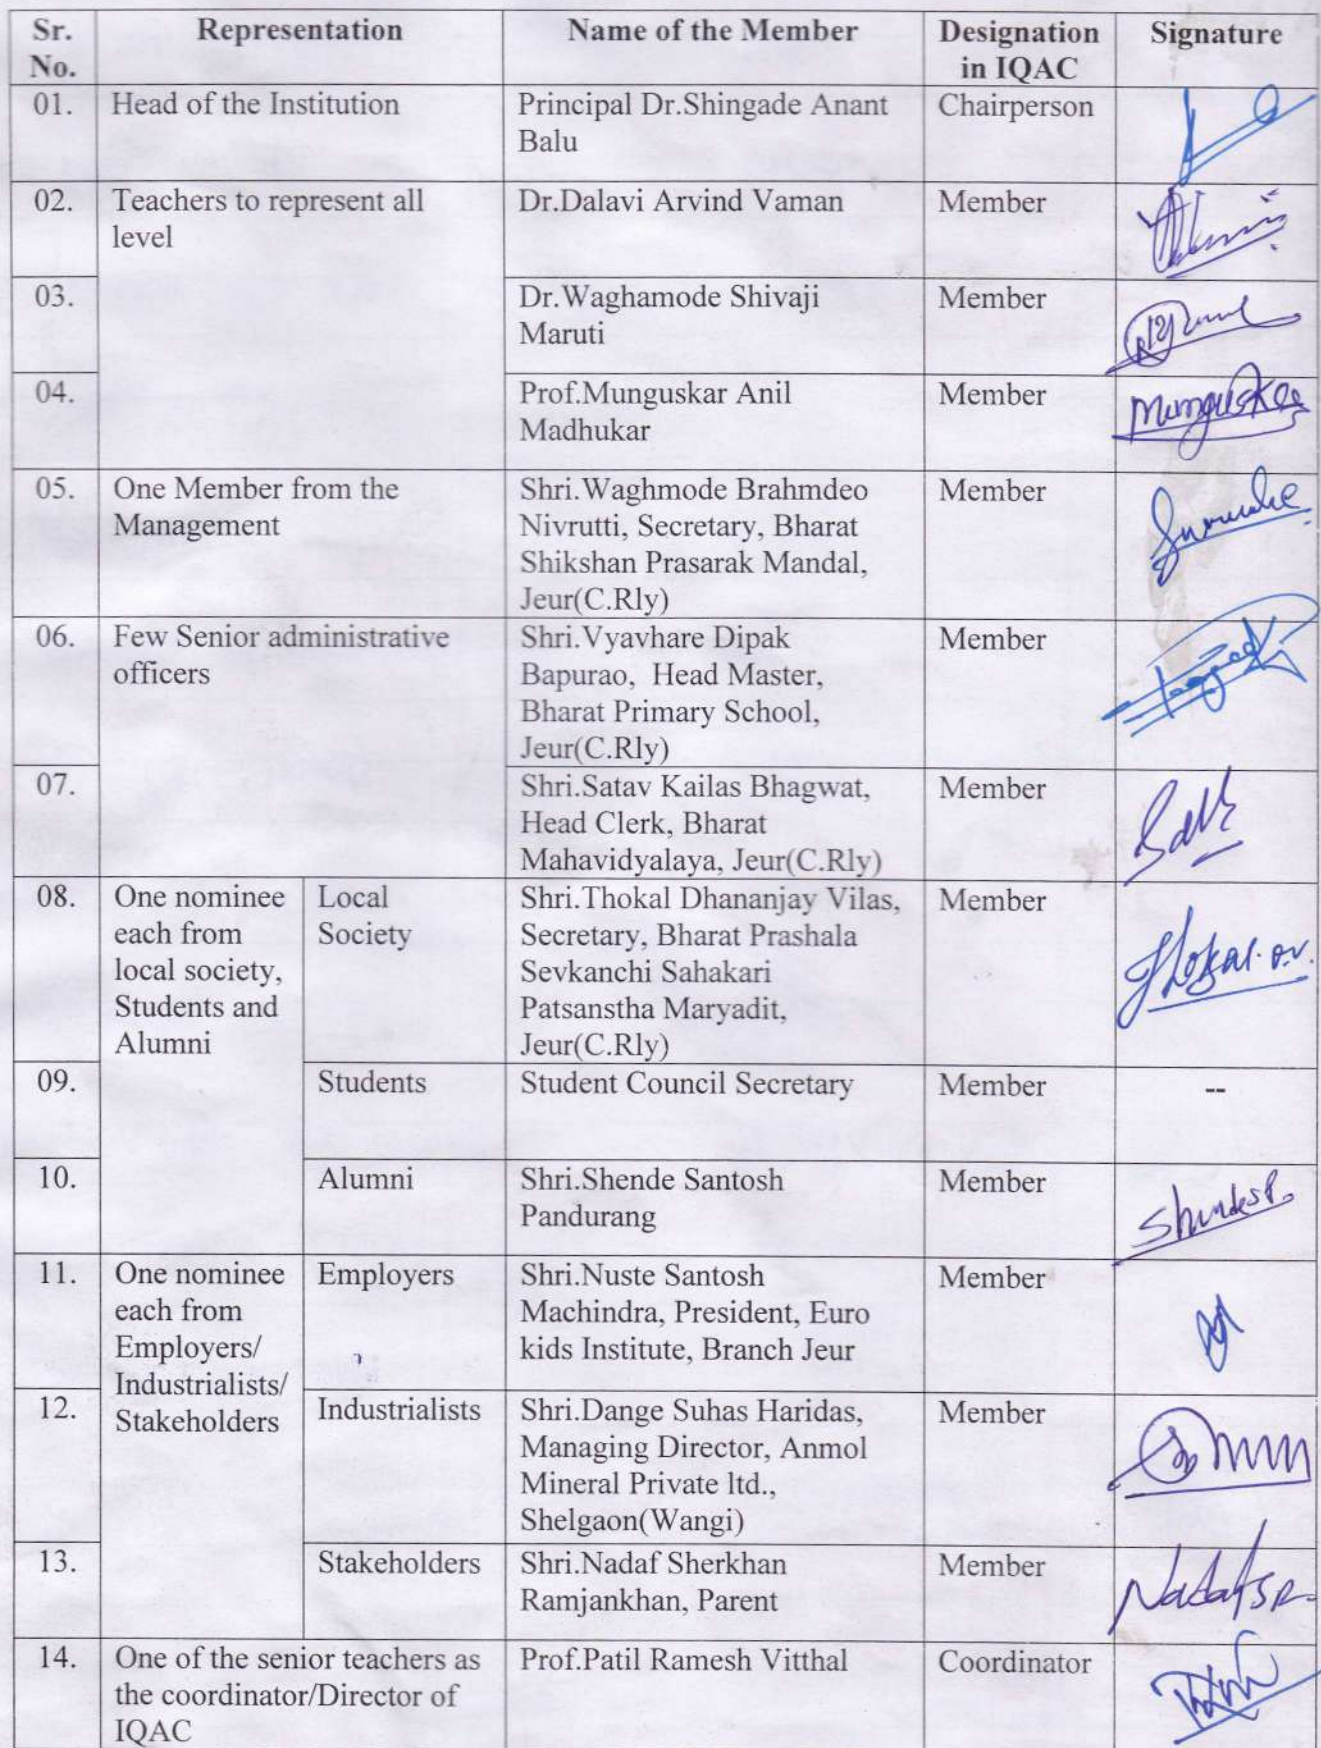 Sr. No. Representation Name of the Member Designation in IQAC Signature
01. Head of the Institution Principal Dr.Shingade Anant
Balu Chairperson
02. Teachers to represent all
level Dr.Dalavi Arvind Vaman Member
03. Dr.Waghamode Shivaji
Maruti Member
04. Prof.Munguskar Anil
Madhukar Member Munguskar
05. One Member from the
Management Shri.Waghmode Brahmdeo
Nivrutti, Secretary, Bharat
Shikshan Prasarak Mandal,
Jeur(C.Rly) Member
06. Few Senior administrative
officers Shri.Vyavhare Dipak
Bapurao, Head Master,
Bharat Primary School,
Jeur(C.Rly) Member
07. Shri.Satav Kailas Bhagwat,
Head Clerk, Bharat
Mahavidyalaya, Jeur(C.Rly) Member
08. One nominee
each from
local society,
Students and
Alumni Local
Society Shri.Thokal Dhananjay Vilas,
Secretary, Bharat Prashala
Sevkanchi Sahakari
Patsanstha Maryadit,
Jeur(C.Rly) Member
09. Students Student Council Secretary Member --
10. Alumni Shri.Shende Santosh
Pandurang Member
11. One nominee
each from
Employers/
Industrialists/
Stakeholders Employers Shri.Nuste Santosh
Machindra, President, Euro
kids Institute, Branch Jeur Member
12. Industrialists Shri.Dange Suhas Haridas,
Managing Director, Anmol
Mineral Private ltd.,
Shelgaon(Wangi) Member
13. Stakeholders Shri.Nadaf Sherkhan
Ramjankhan, Parent Member Nadaf S R
14. One of the senior teachers as
the coordinator/Director of
IQAC Prof.Patil Ramesh Vitthal Coordinator